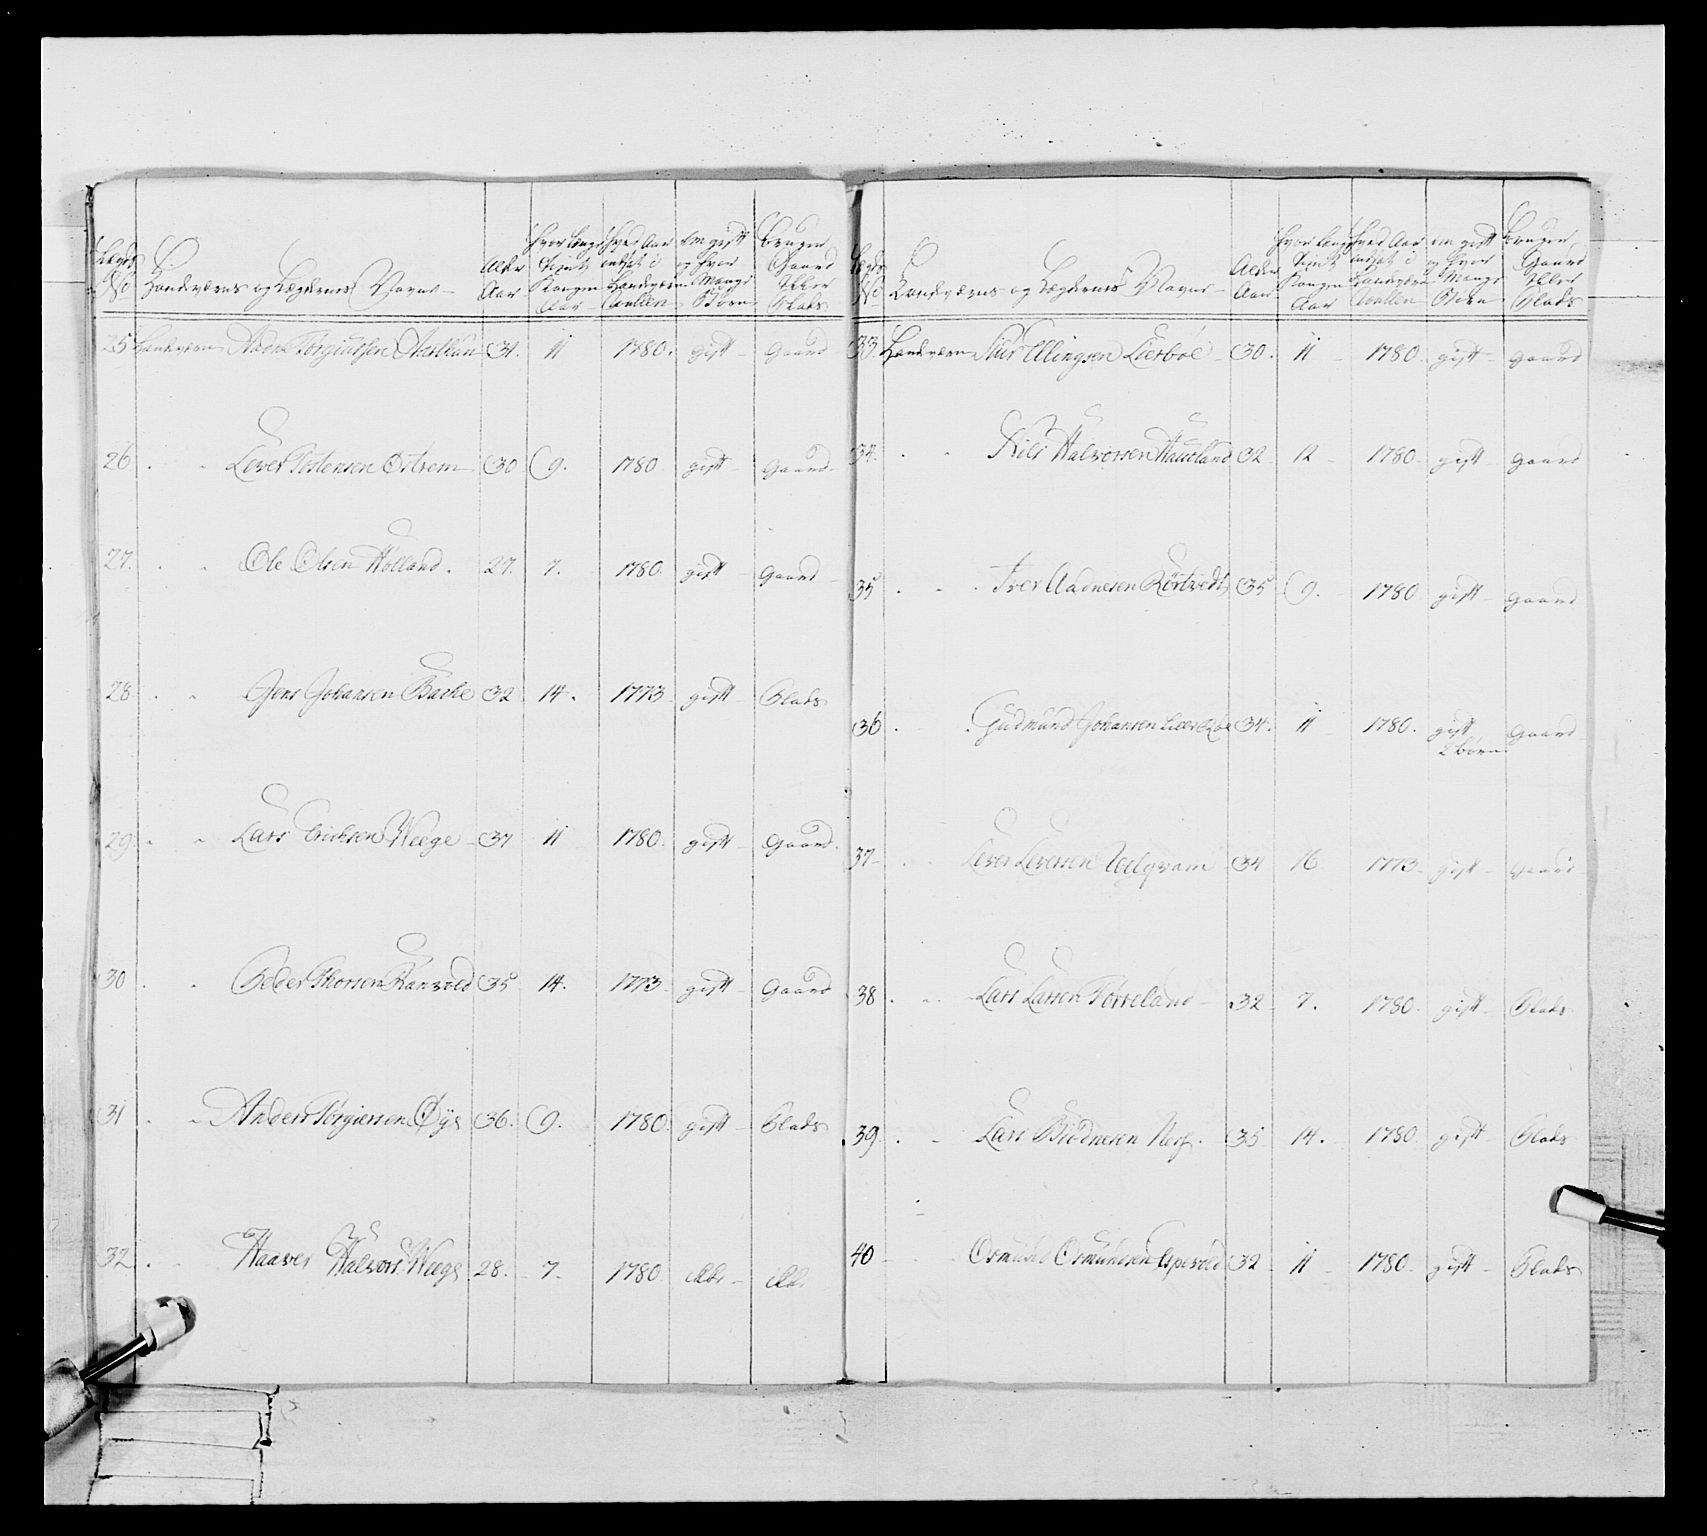 Lægds No Landværns og Lægdernes Navne Alder Aar Hvor længe Tient Kongen Aar Hvad Aar indsat i Landværn Rullen om gift og Hvor Mange Børn bruger Gaard Eller Plads
25 Landværn Torgiulsen 31. 11 1780. gift Gaard
26 Lever Tostensen Østrem 30 9. 1780 gift Gaard
27. Ole Olsen Holland. 27. 7. 1780. gift Gaard
28 Jens Johansen Bache 32 14. 1773 gift Plads
29 Lars Erichsen Weege 37 11 1780. gift Gaard
30 Peder Thorsen Ranvold 35 14. 1773 gift Gaard
31 Anders Torgiersen Øye 36. 9. 1780. gift Plads
32 Haaver Halvors: Weege 28. 7. 1780. ikke ikke
Lægds No Landværns og Lægdernes Navne Alder Aar Hvor længe Tient Kongen Aar Hvad Aar indsat i Landværn Rullen om gift og Hvor Mange Børn bruger Gaard Eller Plads
33. Landværn Siur Ellingsen Lierboe 30. 11 1780 gift gaard
34. Nils Halvorsen Haueland 32 12 1780 gift gaard
35 Iver Aadnesen Rørtvedt 35 9. 1780 gift gaard
36 Gudmund Johansen 34. 11 1780. gift 2 børn Gaard
37 Lever Leversen Uelgvam 34 16 1773 gift gaard
38 Lars Larsen Torreland 32 7. 1780. gift Plads
39. Lars Biødnesen Nesf. 35 14. 1780. gift Plads
40 Osmund Osmundsen Espevold 32 11 1780. gift Plads